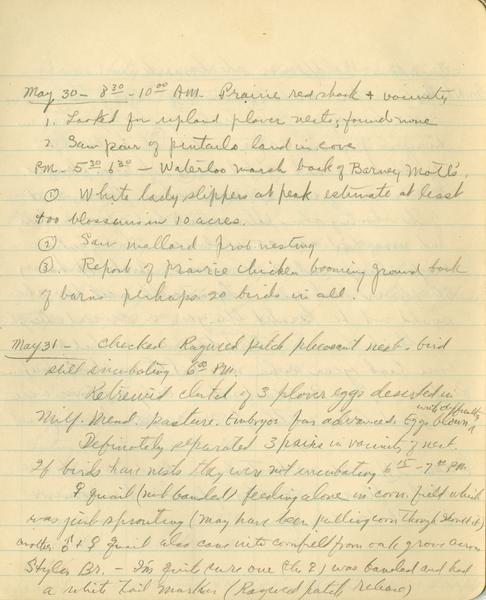 May 30 - 8 30 - 10 00 A.M. Prairie red shack + vacinity
1. Looked for upland plover nests; found none
2. Saw pair of pintails land in cove
P.M. - 5 30 6 30 - Waterloo marsh back of Barney Motl's.
① White lady slippers at peak estimate at least
400 blossoms in 10 acres.
② Saw mallard prob nesting
③ Report of prairie chicken booming ground back
of barn perhaps 20 birds in all.
May 31 - Checked Ragweed patch pheasant nest - bird
still incubating 6 00 P.M.
Retrieved clutch of 3 plover eggs deserted in
Milf. Mead. pasture. Embryos far advanced. Eggs blown with difficulty
Definately separated 3 pairs in vacinity of nest
If birds have nests they were not incubating 6 15 - 7 00 P.M.
♀ quail (not banded) feeding alone in corn field which
was just sprouting (may have been pulling corn though I doubt it)
another ♂ + ♀ quail also came into cornfield from oak grove across
Br. - I'm quite sure one (the ♀) was banded and had
a white tail marker (Ragweed patch release)